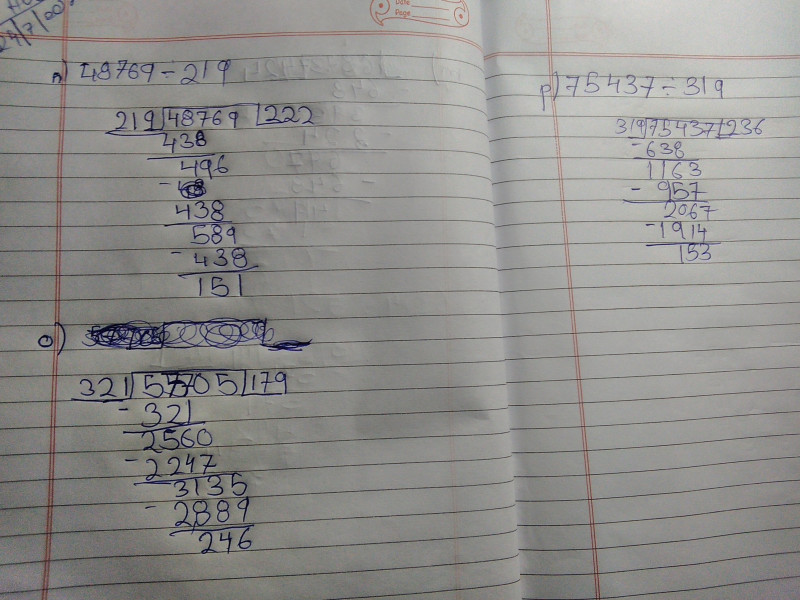 Date
Page
29/7/20
n) 48769 ÷ 219
219 48769 222
438
496
-
438
589
- 438
151
o)
321 57705 179
- 321
2560
- 2247
3135
- 2889
246
p) 75437 ÷ 319
319 75437 236
- 638
1163
- 957
2067
- 1914
153